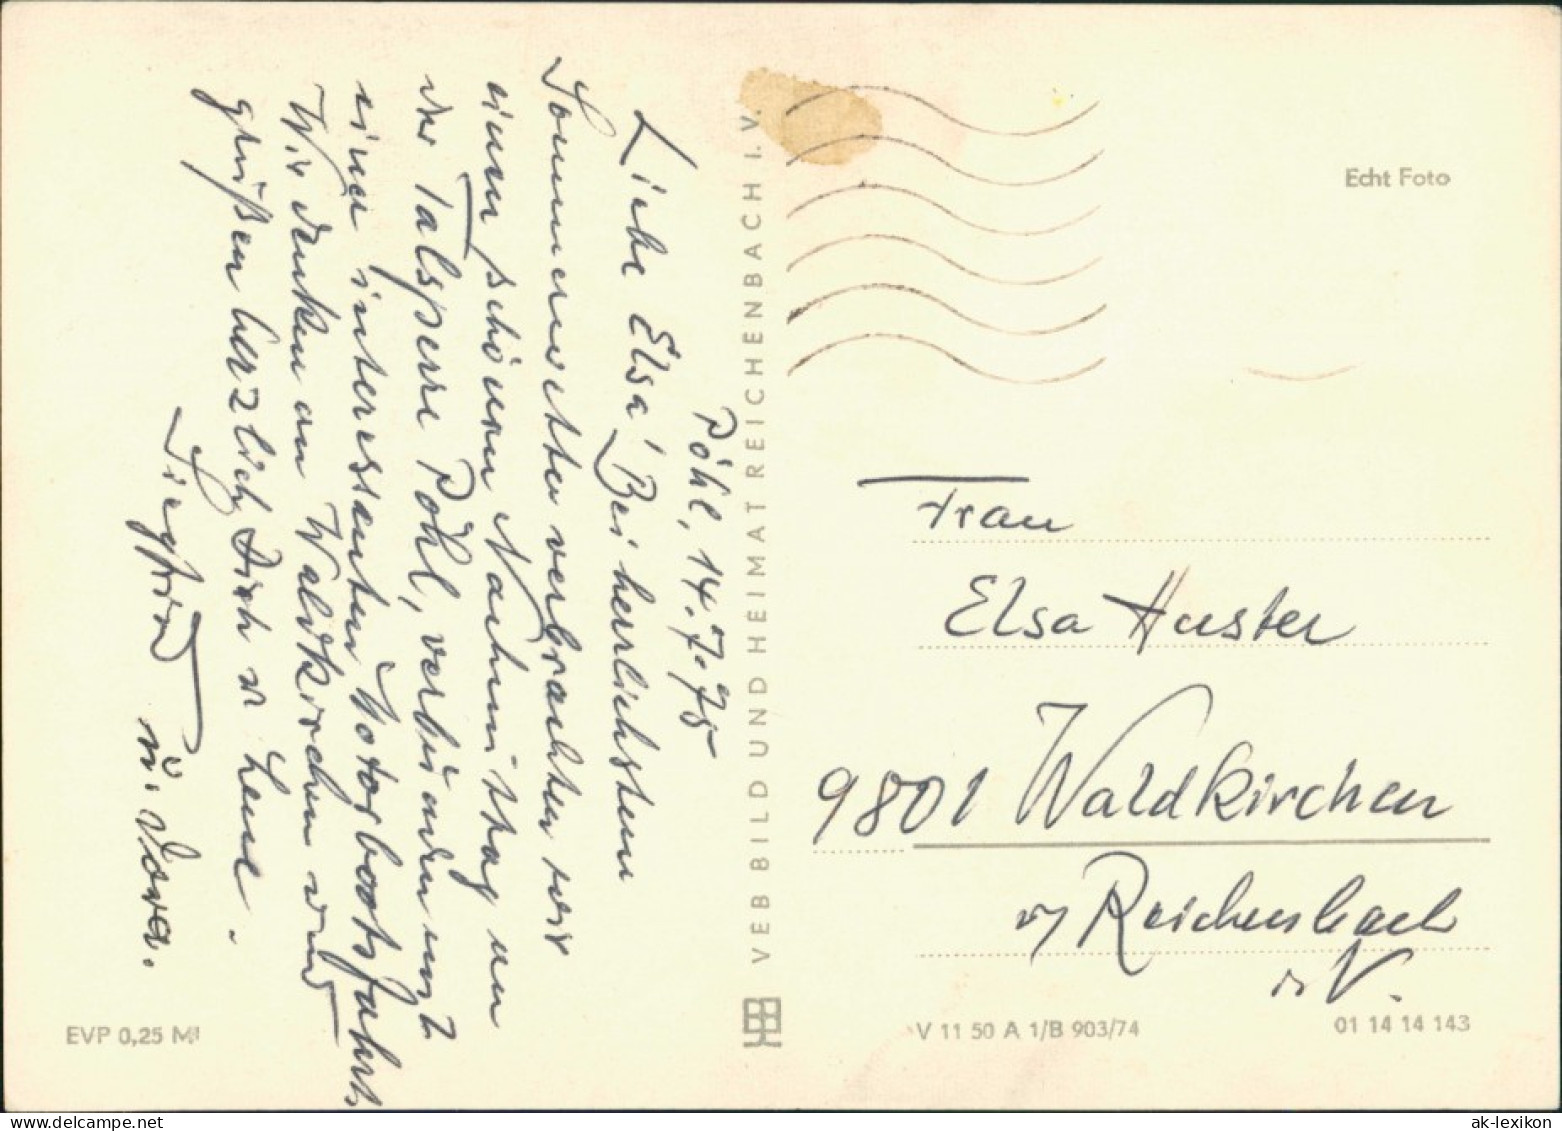 Pöhl, 14.7.75
Liebe Elsa! Bei herrlichstem
Sommerwetter verbrachten wir
einen schönen Nachmittag an
der Talsperre Pöhl, verbunden mit
einer interessanten Motorbootsfahrt.
Wir denken an Waldkirchen und
grüßen herzlich Dich u. Lene.
Siegfried
u. Dora.
VEB BILD UND HEIMAT REICHENBACH I. V.
Echt Foto
Frau
Elsa Huster
9801 Waldkirchen
Reichenbach
i. V.
EVP 0,25 M
V 11 50 A 1/B 903/74
01 14 14 143
ak-lexikon